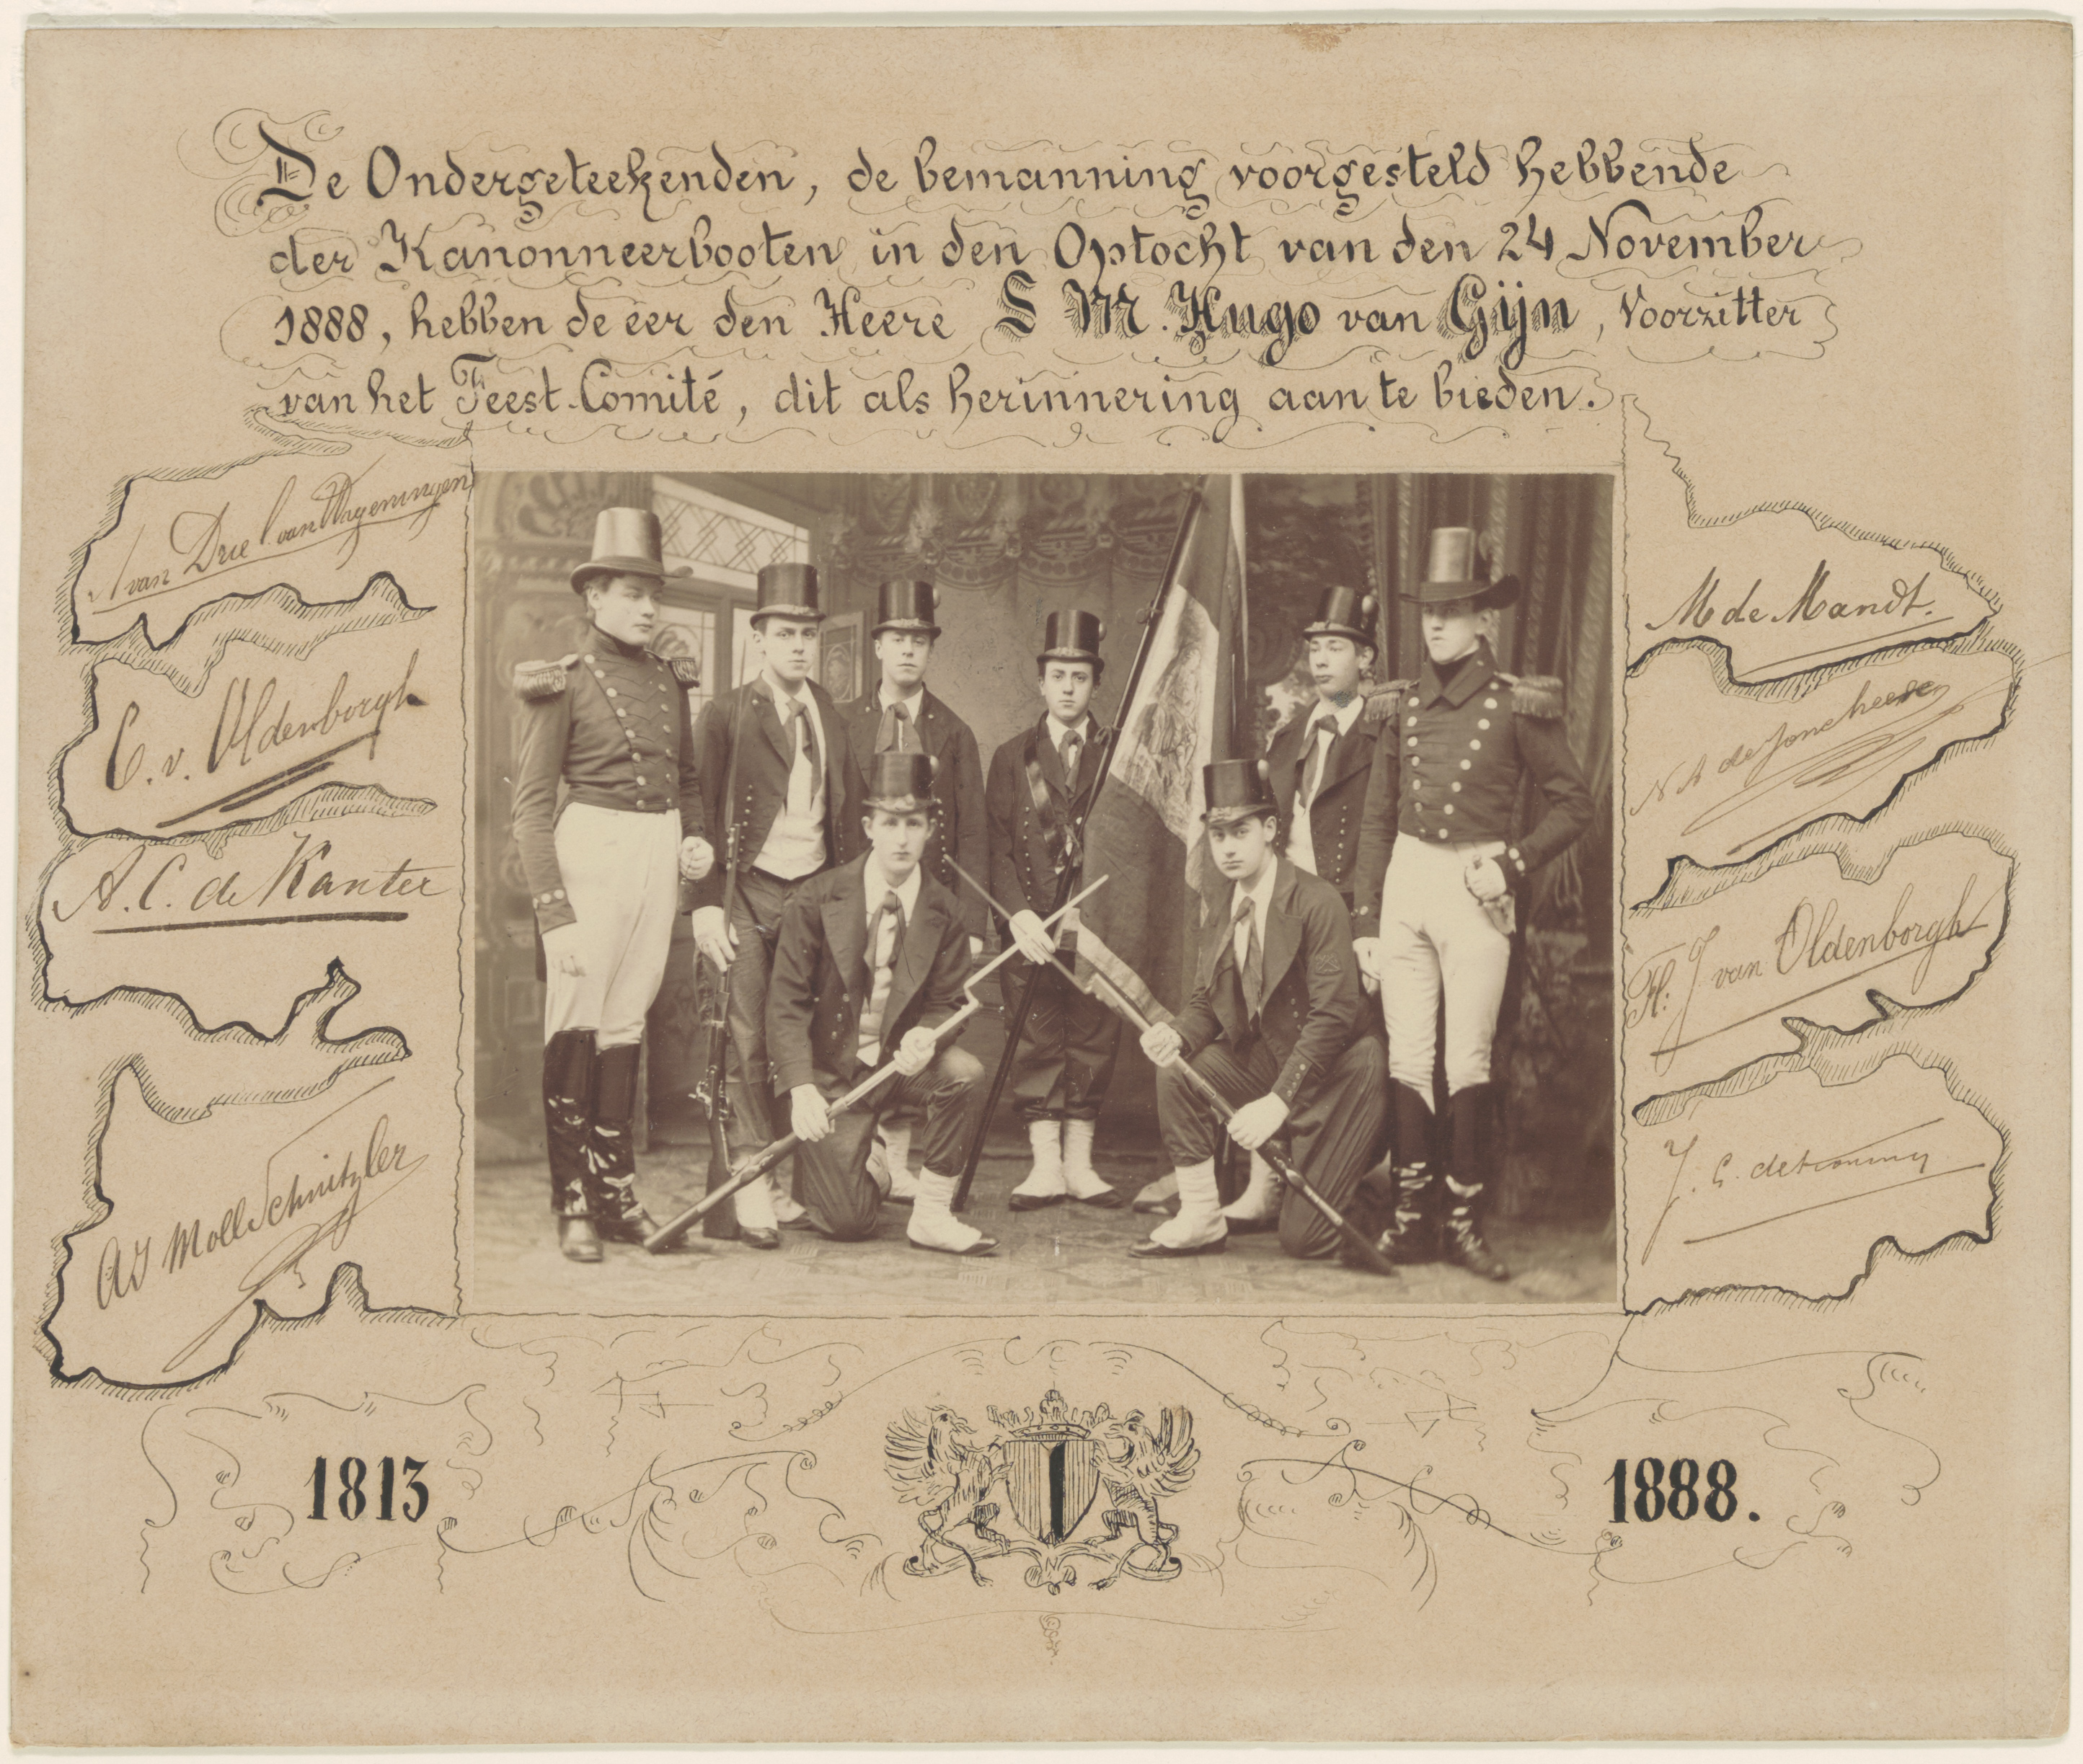 De Ondergeteekenden, de bemanning voorgesteld hebbende
der Kanonneerbooten in den Optocht van den 24 November
1888, hebben de eer den Heere S M. Hugo van Gijn, Voorzitter
van het Feest-Comité, dit als herinnering aan te bieden.
van Driel van Wageningen
C. v. Oldenborgh
A. C. de Kanter
AJ Moll Schnitzler
M de Mandt.
N A de Joncheere
H: J van Oldenborgh
J. C.
1813
1888.